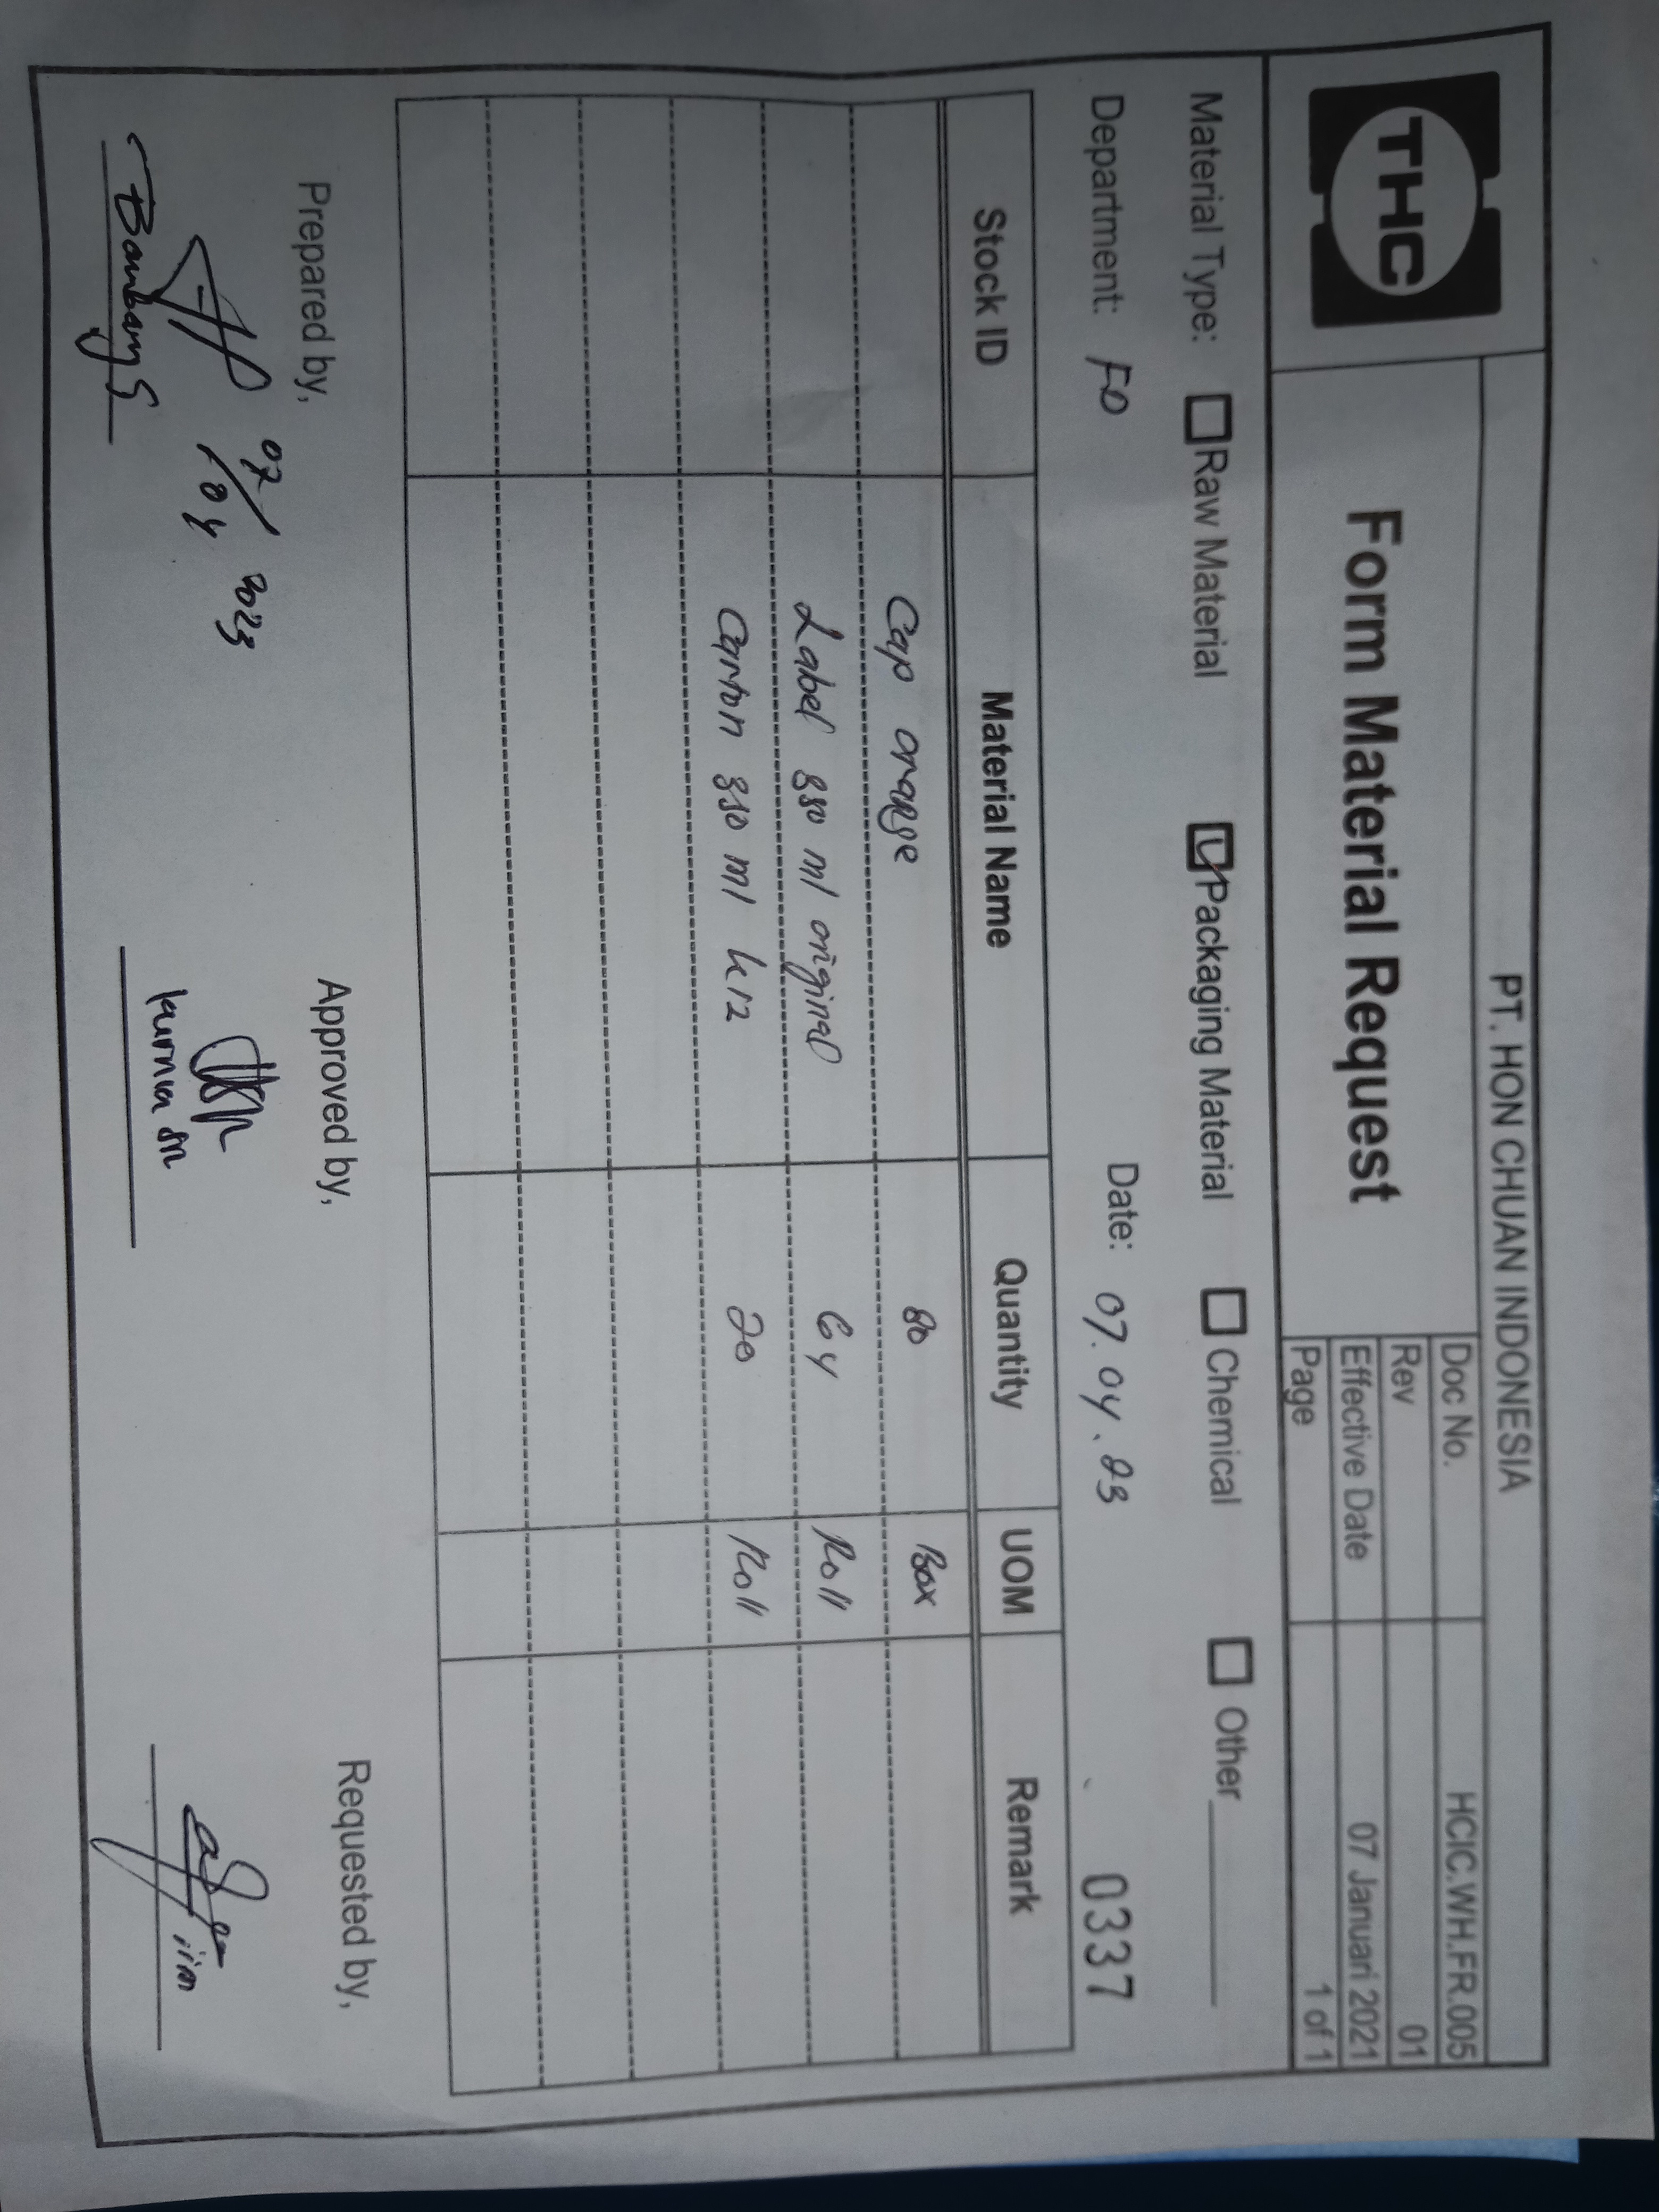 THC
PT. HON CHUAN INDONESIA
Form Material Request
Doc No. HCIC.WH.FR.005
Rev 01
Effective Date 07 Januari 2021
Page 1 of 1
Material Type: Raw Material Packaging Material Chemical Other
Department: FD Date: 07.04.23 0337
Stock ID Material Name Quantity UOM Remark
Cap orange 80 Box
Label 350 ml original 64 Roll
Carton 350 ml k12 20 Roll
Prepared by, Approved by, Requested by,
07/04 2023
Bambang S
iim